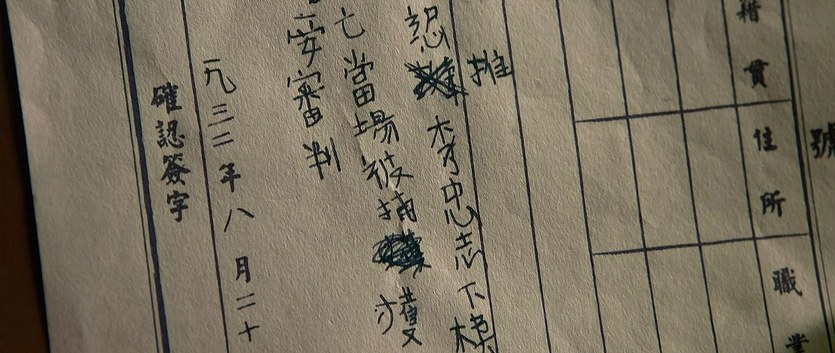 號
籍貫 住所 職業
推
認李忠志下樓
亡當場被捕獲
安審判
一九三二年八月二十
確認簽字